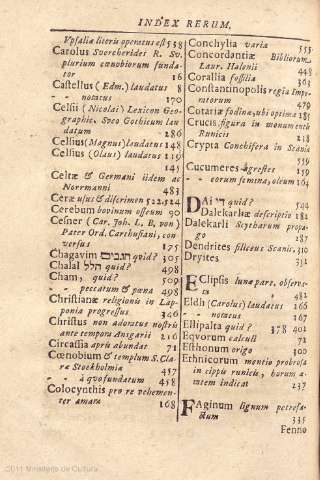 INDEX RERUM.
Vpsaliæ literis operatus est 538
Carolus Svercherides R. Sv.
plurium cœnobiorum funda-
tor 16
Castellus (Edm.) laudatus 8
- - notatus 170
Celsii (Nicolai) Lexicon Geo-
graphic. Sveo Gothicum lau
datum 286
Celsius (Magnus) laudatus 148
Celsius (Olaus) laudatus 119
145
Celtæ & Germani iidem ac
Norrmanni 483
Ceræ usus & discrimen 522.524
Cerebum bovinum osseum 90
Cesner (Car. Joh. L. B, von)
Pater Ord. Carthusiani, con
versus 175
Chagavim חגבים quid? 305
Chalal הלל quid? 498
Cham, quid? 509
- - peccatum & pœna 498
Christianæ religionis in Lap-
ponia progressus 346
Christus non adoratus nostris
ante tempora Ansgarii 216
Circassia apris abundat 71
Cœnobium & templum S. Cla-
ræ Stockholmia 457
- - à quo fundatum 458
Colocynthis pro re vehemen-
ter amara 168
Conchylia varia 553
Concordantiæ Bibliorum
Laur. Halenii 448
Corallia fossilia 363
Constantinopolis regia Impe-
ratorum 479
Cotariæ fodinæ, ubi optima 181
Crucis figura in monumentis
Runicis 218
Crypta Conchifera in Scania
559
Cucumeres agrestes 159
- - eorum semina, oleum 164
DAi די quid? 504
Dalekarliæ descriptio 181
Dalekarli Scytharum propa-
go 287
Dendrites siliceus Scanic. 310
Dryites 331
ECclipsis lunæ pars. observa-
ta 481
Eldh (Carolus) laudatus 166
- - notatus 167
Ellipalta quid? 378 401
Eqvorum calculi 71
Esthonum origo 300
Ethnicorum mentio probrosa
in cippis runicis, horum a-
tatem indicat 237
FAginum lignum petrefa-
ctum 335
Fenno
©2011 Ministerio de Cultura